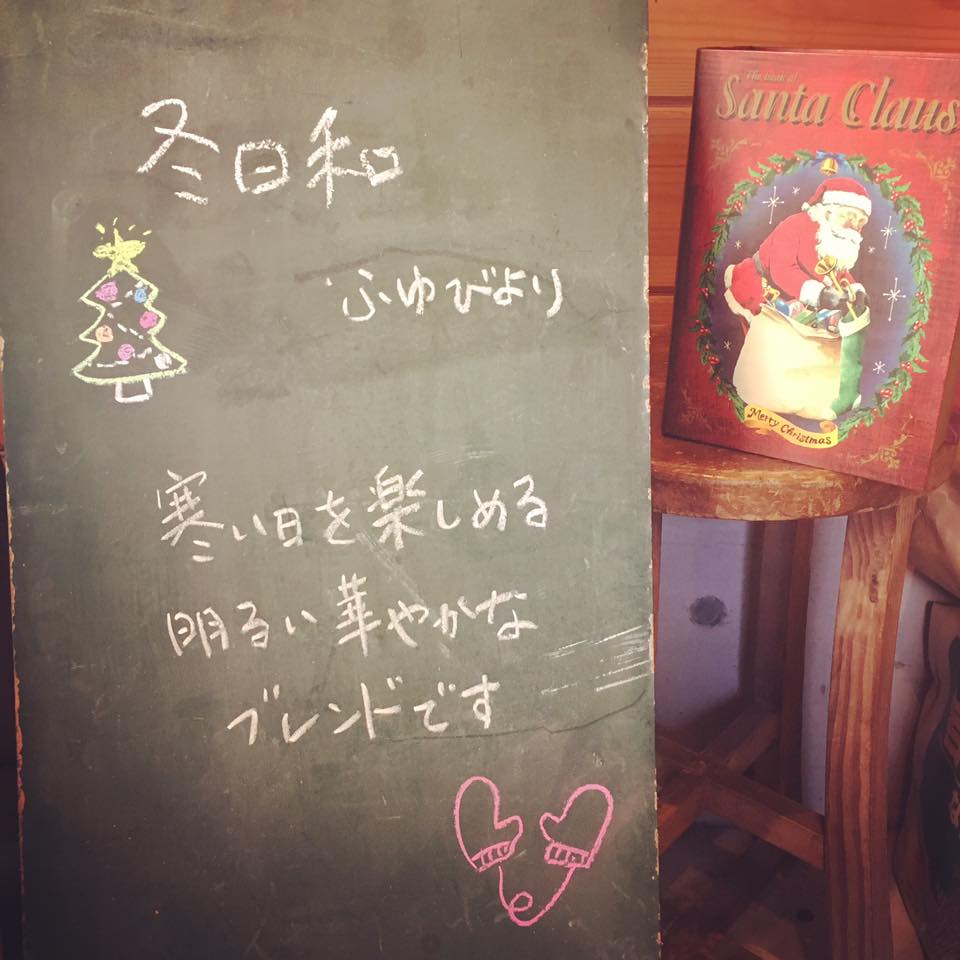 冬日和
ふゆびより
寒い日を楽しめる
明るい華やかな
ブレンドです
The book of
Santa Claus
Merry Christmas